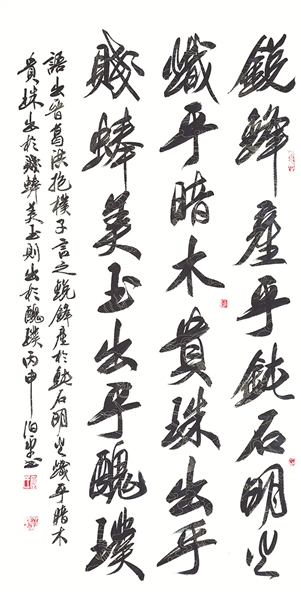 銳鋒產乎鈍石明火
熾乎暗木貴珠出乎
賤蚌美玉出乎醜璞
語出晉葛洪抱樸子言之銳鋒產於鈍石明火熾乎暗木
貴珠出於賤蚌美玉則出於醜璞丙申